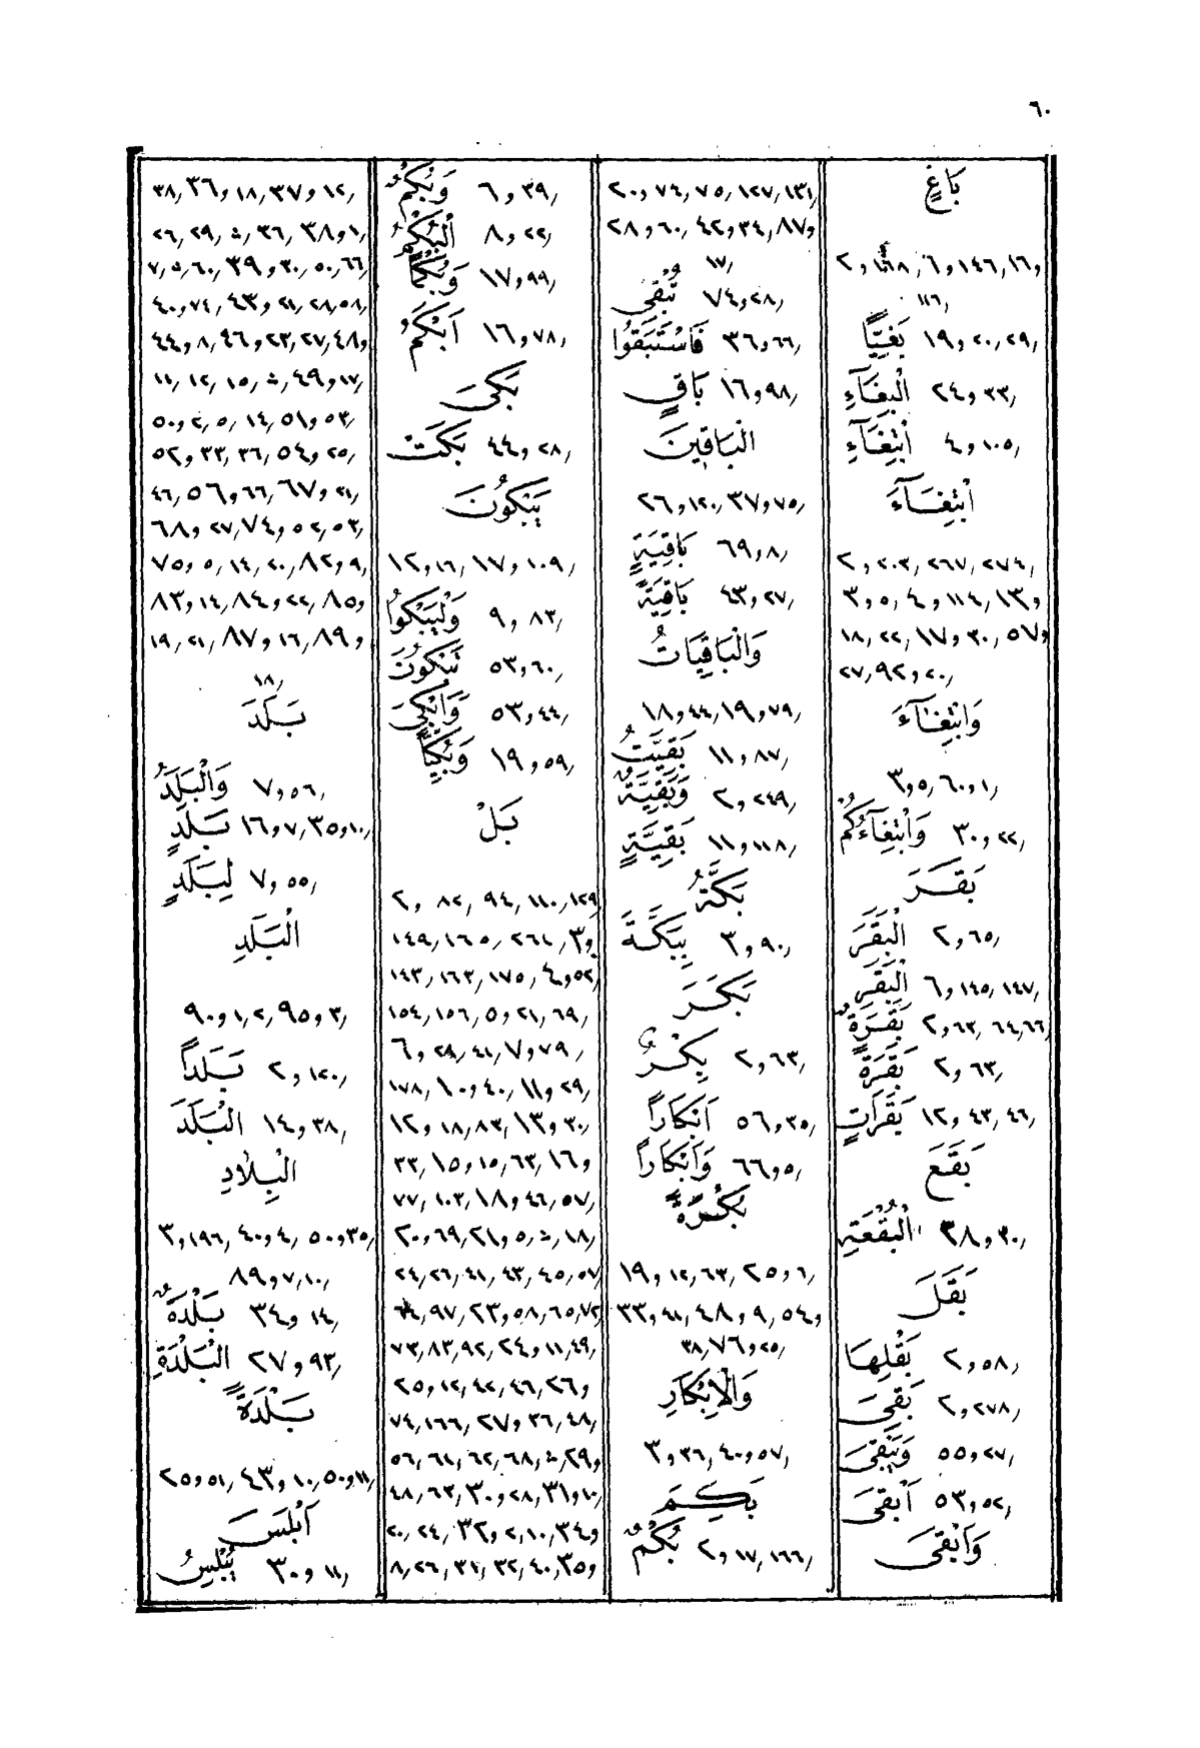 ٦٠
بَاغٍ
و١٦, ١٤٦و٦, ١٦٨و٢
١١٦,
بَغِيًّا ١٩و٢٠,٢٩,
الْبِغَآءِ ٢٤و٣٣,
ابْتِغَآءِ ٤و١٠٥,
ابْتِغَآءَ
٢و٢٠٣, ٢٦٧, ٢٧٤,
٣و٥, ٤و١١٤, ١٣و
١٨, ٢٢, ١٧و٣٠, ٥٧و
٢٧, ٩٢و٢٠,
وَابْتِغَآءَ
٣و٥, ٦٠و١,
وَابْتِغَآؤُكُمْ ٣٠و٢٢,
بَقَرَ
الْبَقَرَ ٢و٦٥,
الْبَقَرِ ٦و١٤٥, ١٤٧,
بَقَرَةٌ ٢و٦٣, ٦٤,٦٦,
بَقَرَةً ٢و٦٣,
بَقَرَاتٍ ١٢و٤٣, ٤٦,
بَقَعَ
الْبُقْعَةِ ٣٨و٣٠,
بَقَلَ
بَقْلِهَا ٢و٥٨,
بَقِيَ ٢و٢٧٨,
وَيَبْقَىٰ ٥٥و٢٧,
أَبْقَىٰ ٥٣و٥٢,
وَأَبْقَىٰ
٢٠و٧٤, ٧٥, ١٢٧, ١٣١,
٢٨و٦٠, ٤٢و٣٤, ٨٧و
١٧,
تُبْقِي ٧٤و٢٨,
فَاسْتَبَقُوا ٣٦و٦٦,
بَاقٍ ١٦و٩٨,
الْبَاقِينَ
٢٦و١٢٠, ٣٧و٧٥,
بَاقِيَةٍ ٦٩و٨,
بَاقِيَةً ٤٣و٢٧,
وَالْبَاقِيَاتُ
١٨و٤٤, ١٩و٧٩,
بَقِيَّتُ ١١و٨٧,
وَبَقِيَّةٌ ٢و٢٤٩,
بَقِيَّةٍ ١١و١١٨,
بَكَّةُ
بِبَكَّةَ ٣و٩٠,
بَكَرَ
بِكْرٌ ٢و٦٣,
أَبْكَارًا ٥٦و٣٥,
وَأَبْكَارًا ٦٦و٥,
بُكْرَةً
١٩و١٢,٦٣, ٢٥و٦,
٣٣و٤١, ٤٨و٩, ٥٤و,
٣٨, ٧٦و٢٥,
وَالْإِبْكَارِ
٣و٣٦, ٤٠و٥٧,
بَكِمَ
بُكْمٌ ٢و١٧, ١٦٦,
وَبُكْمٌ ٦و٣٩,
الْبُكْمُ ٨و٢٢,
وَبُكْمًا ١٧و٩٩,
أَبْكَمُ ١٦و٧٨,
بَكَىٰ
بَكَتْ ٤٤و٢٨,
يَبْكُونَ
١٢و١٦, ١٧و١٠٩,
وَلْيَبْكُوا ٩و٨٣,
تَبْكُونَ ٥٣و٦٠,
وَأَبْكَىٰ ٥٣و٤٤,
وَبُكِيًّا ١٩و٥٩,
بَلْ
٢و ٨٢, ٩٤, ١١٠, ١٢٩,
١٤٩, ١٦٥, ٢٦١, ٣و,
١٤٣, ١٦٣, ١٧٥, ٤و٥٢,
١٥٤, ١٥٦, ٥و٢١, ٦٩,
٦و٢٩, ٤١, ٧و٧٩,
١٧٨, ١٠و٤٠, ١١و٢٩,
١٢و١٨, ٨٣, ١٣و٣٠,
٣٣, ١٥و١٥, ٦٣, ١٦و
٧٧, ١٠٣, ١٨و٤٦, ٥٧,
٢٠و٦٩, ٢١و٥, ١٨,
٢٤, ٢٦, ٤١, ٤٣, ٤٥, ٥٧,
٩٧, ٢٣و٥٨, ٦٥, ٧٢
٧٣, ٨٣, ٩٢, ٢٤و١١, ٤٩,
٢٥و١٢, ٤٢, ٤٦, ٢٦و
٧٤, ١٦٦, ٢٧و٣٦, ٤٨,
٥٦, ٦١, ٦٢, ٦٨, ٢٩و
٤٨, ٦٣, ٣٠و٢٨, ٣١و١٠,
٢٠, ٢٤, ٣٢و٢, ١٠, ٣٤و
٨, ٢٦, ٣١, ٣٢, ٤٠, ٣٥و
٣٨, ٣٦و١٨, ٣٧و١٢,
٢٦, ٢٩, ٣٦, ٣٨و١,
٦٠, ٣٩و٣٠, ٥٠, ٦٦,
٤٠و٧٤, ٤٣و٢١, ٢٨, ٥٨,
٤٤و٨, ٤٦و٢٣, ٢٧, ٤٨و
١١, ١٢, ١٥, ٤٩و١٧,
٥٠و٢, ٥, ١٤, ٥١و٥٣,
٥٢و٣٣, ٣٦, ٥٤و٢٥,
٤٦, ٥٦و٦٦, ٦٧و٢١,
٦٨و ٢٧, ٧٤و٥٢, ٥٣,
٧٥و٥, ١٤, ٢٠, ٨٢و٩,
٨٣و١٤, ٨٤و٢٢, ٨٥,
١٩, ٢١, ٨٧و١٦, ٨٩و
١٨,
بَلَدَ
وَالْبَلَدُ ٧و٥٦,
بَلَدٍ ١٦و٧, ٣٥و١٠,
لِبَلَدٍ ٧و٥٥,
الْبَلَدِ
٩٠و١, ٢, ٩٥و٣,
بَلَدًا ٢و١٢٠,
الْبَلَدَ ١٤و٣٨,
الْبِلَادِ
٣و١٩٦, ٤٠و٤, ٥٠و٣٥,
٨٩و٧, ١٠,
بَلْدَةٌ ٣٤و١٤,
الْبَلْدَةِ ٢٧و٩٣,
بَلْدَةً
٢٥و٥١, ٤٣و١٠, ٥٠و١١,
أَبْلَسَ
يُبْلِسُ ٣٠و١١,